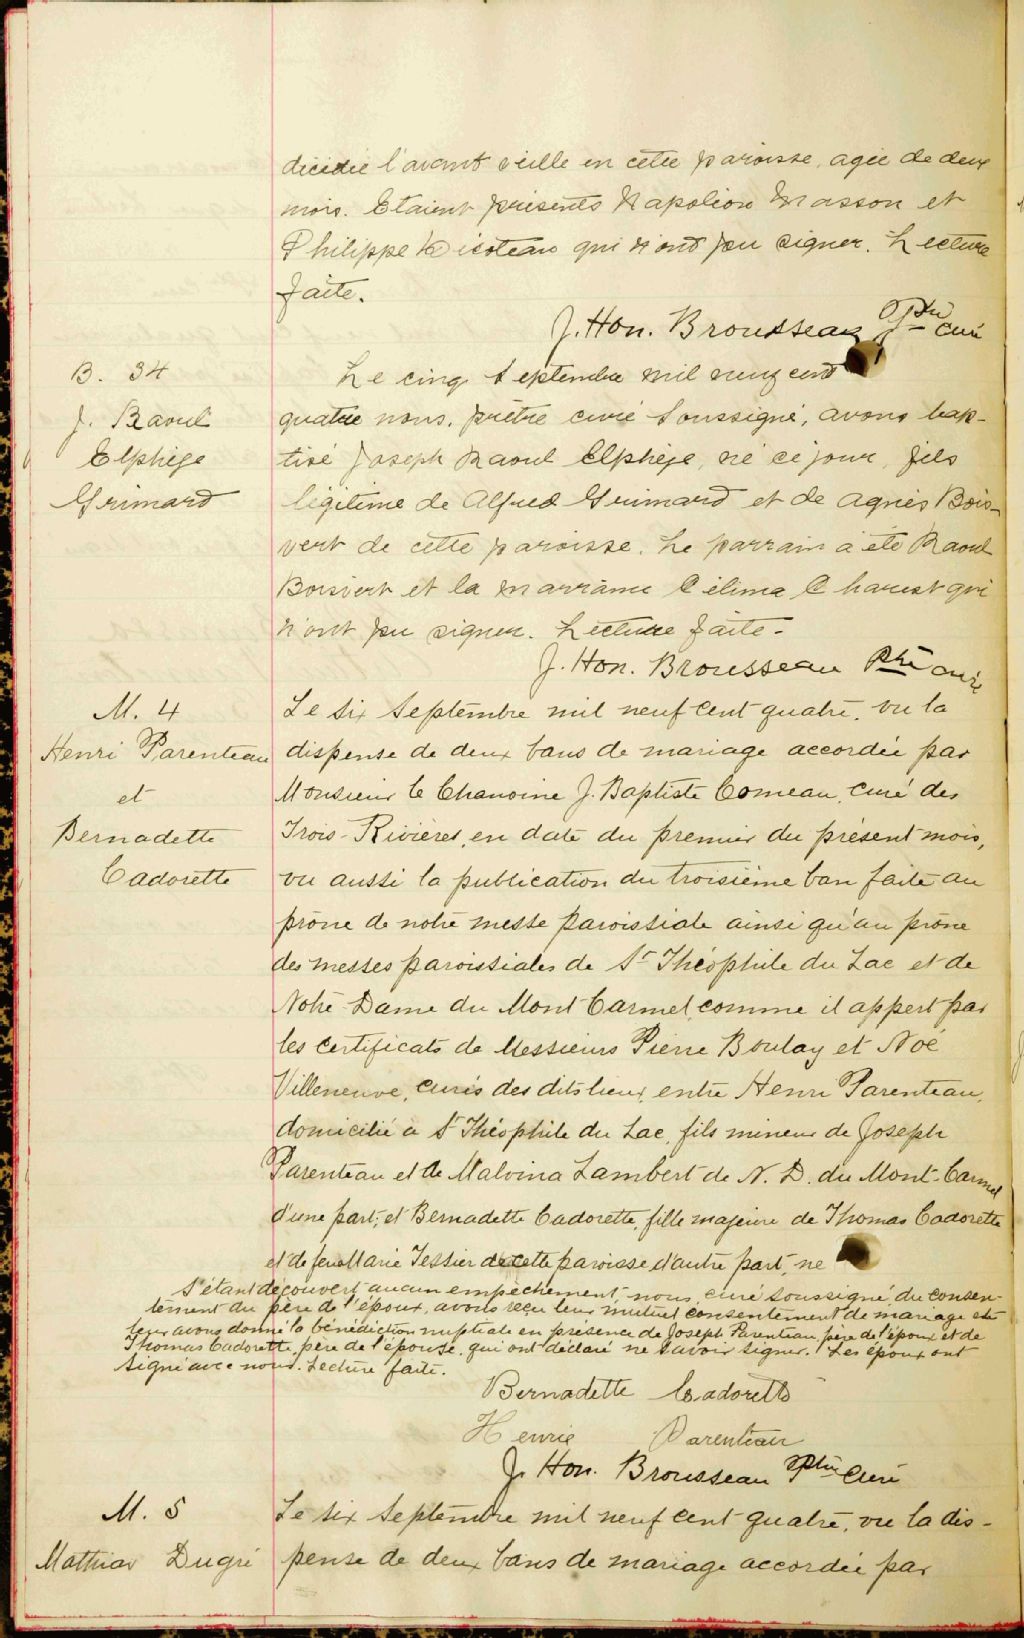 décédée l'avant veille en cette paroisse, agée de deux
mois. Etaient présents Napoléon Masson et
Philippe qui n'ont pu signer. Lecture
faite.
J. Hon. Brousseau Ptre curé
B. 34
J. Raoul
Elphège
Grimard
Le cinq Septembre mil neuf cent
quatre nous, prêtre curé soussigné, avons bap-
tisé Joseph Raoul Elphège, né ce jour, fils
légitime de Alfred Grimard et de Agnès Bois-
vert de cette paroisse. Le parrain a été Raoul
Boisvert et la marraine Célima Charest qui
n'ont pu signer. Lecture faite.
J. Hon. Brousseau Ptre curé
M. 4
Henri Parenteau
et
Bernadette
Cadorette
Le six Septembre mil neuf cent quatre, vu la
dispense de deux bans de mariage accordée par
Monsieur le Chanoine J. Baptiste Comeau, curé des
Trois-Rivières, en date du premier du présent mois,
vu aussi la publication du troisième ban faite au
prône de notre messe paroissiale ainsi qu'au prône
des messes paroissiales de St Théophile du Lac et de
Notre-Dame du Mont Carmel, comme il appert par
les certificats de Messieurs Pierre Boulay et Noé
Villeneuve, curés des dits lieux, entre Henri Parenteau,
domicilié à St Théophile du Lac, fils mineur de Joseph
Parenteau et de Malvina Lambert de N. D. du Mont-Carmel
d'une part; et Bernadette Cadorette, fille majeure de Thomas Cadorette
et de feue Marie Tessier de cette paroisse d'autre part, ne
s'étant découvert aucun empêchement, nous, curé soussigné, du consen-
tement du père de l'époux, avons reçu leur mutuel consentement de mariage et
leur avons donné la bénédiction nuptiale en présence de Joseph Parenteau, père de l'époux et de
Thomas Cadorette, père de l'épouse, qui ont déclaré ne savoir signer. Les époux ont
signé avec nous. Lecture faite.
Bernadette Cadorette
Henrie Parenteau
J. Hon. Brousseau Ptre Curé
M. 5
Mathias Dugré
Le six Septembre mil neuf cent quatre, vu la dis-
pense de deux bans de mariage accordée par